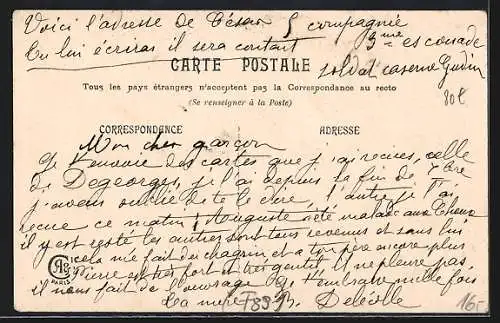 Voici l'adresse de César 5 compagnie
Tu lui écriras il sera content 3me escouade
soldat caserne Gudin
CARTE POSTALE
80 €
Tous les pays étrangers n'acceptent pas la Correspondance au recto
(Se renseigner à la Poste)
CORRESPONDANCE
ADRESSE
Mon cher garçon
Je t'envoie des cartes que j'ai reçues, celle
de Degeorges, je l'ai depuis la fin de 7bre
j'avais oublié de te le dire, l'autre je l'ai
reçue ce matin Auguste été malade aux
il y est resté les autres sont tous revenus et sans lui
cela m'a fait du chagrin et a ton père encore plus
Pierre est très fort et très gentil il ne pleure pas,
il nous fait de l'ouvrage Je t'embrasse mille fois
ta mère Deléolle
PARIS
F8393
16.-